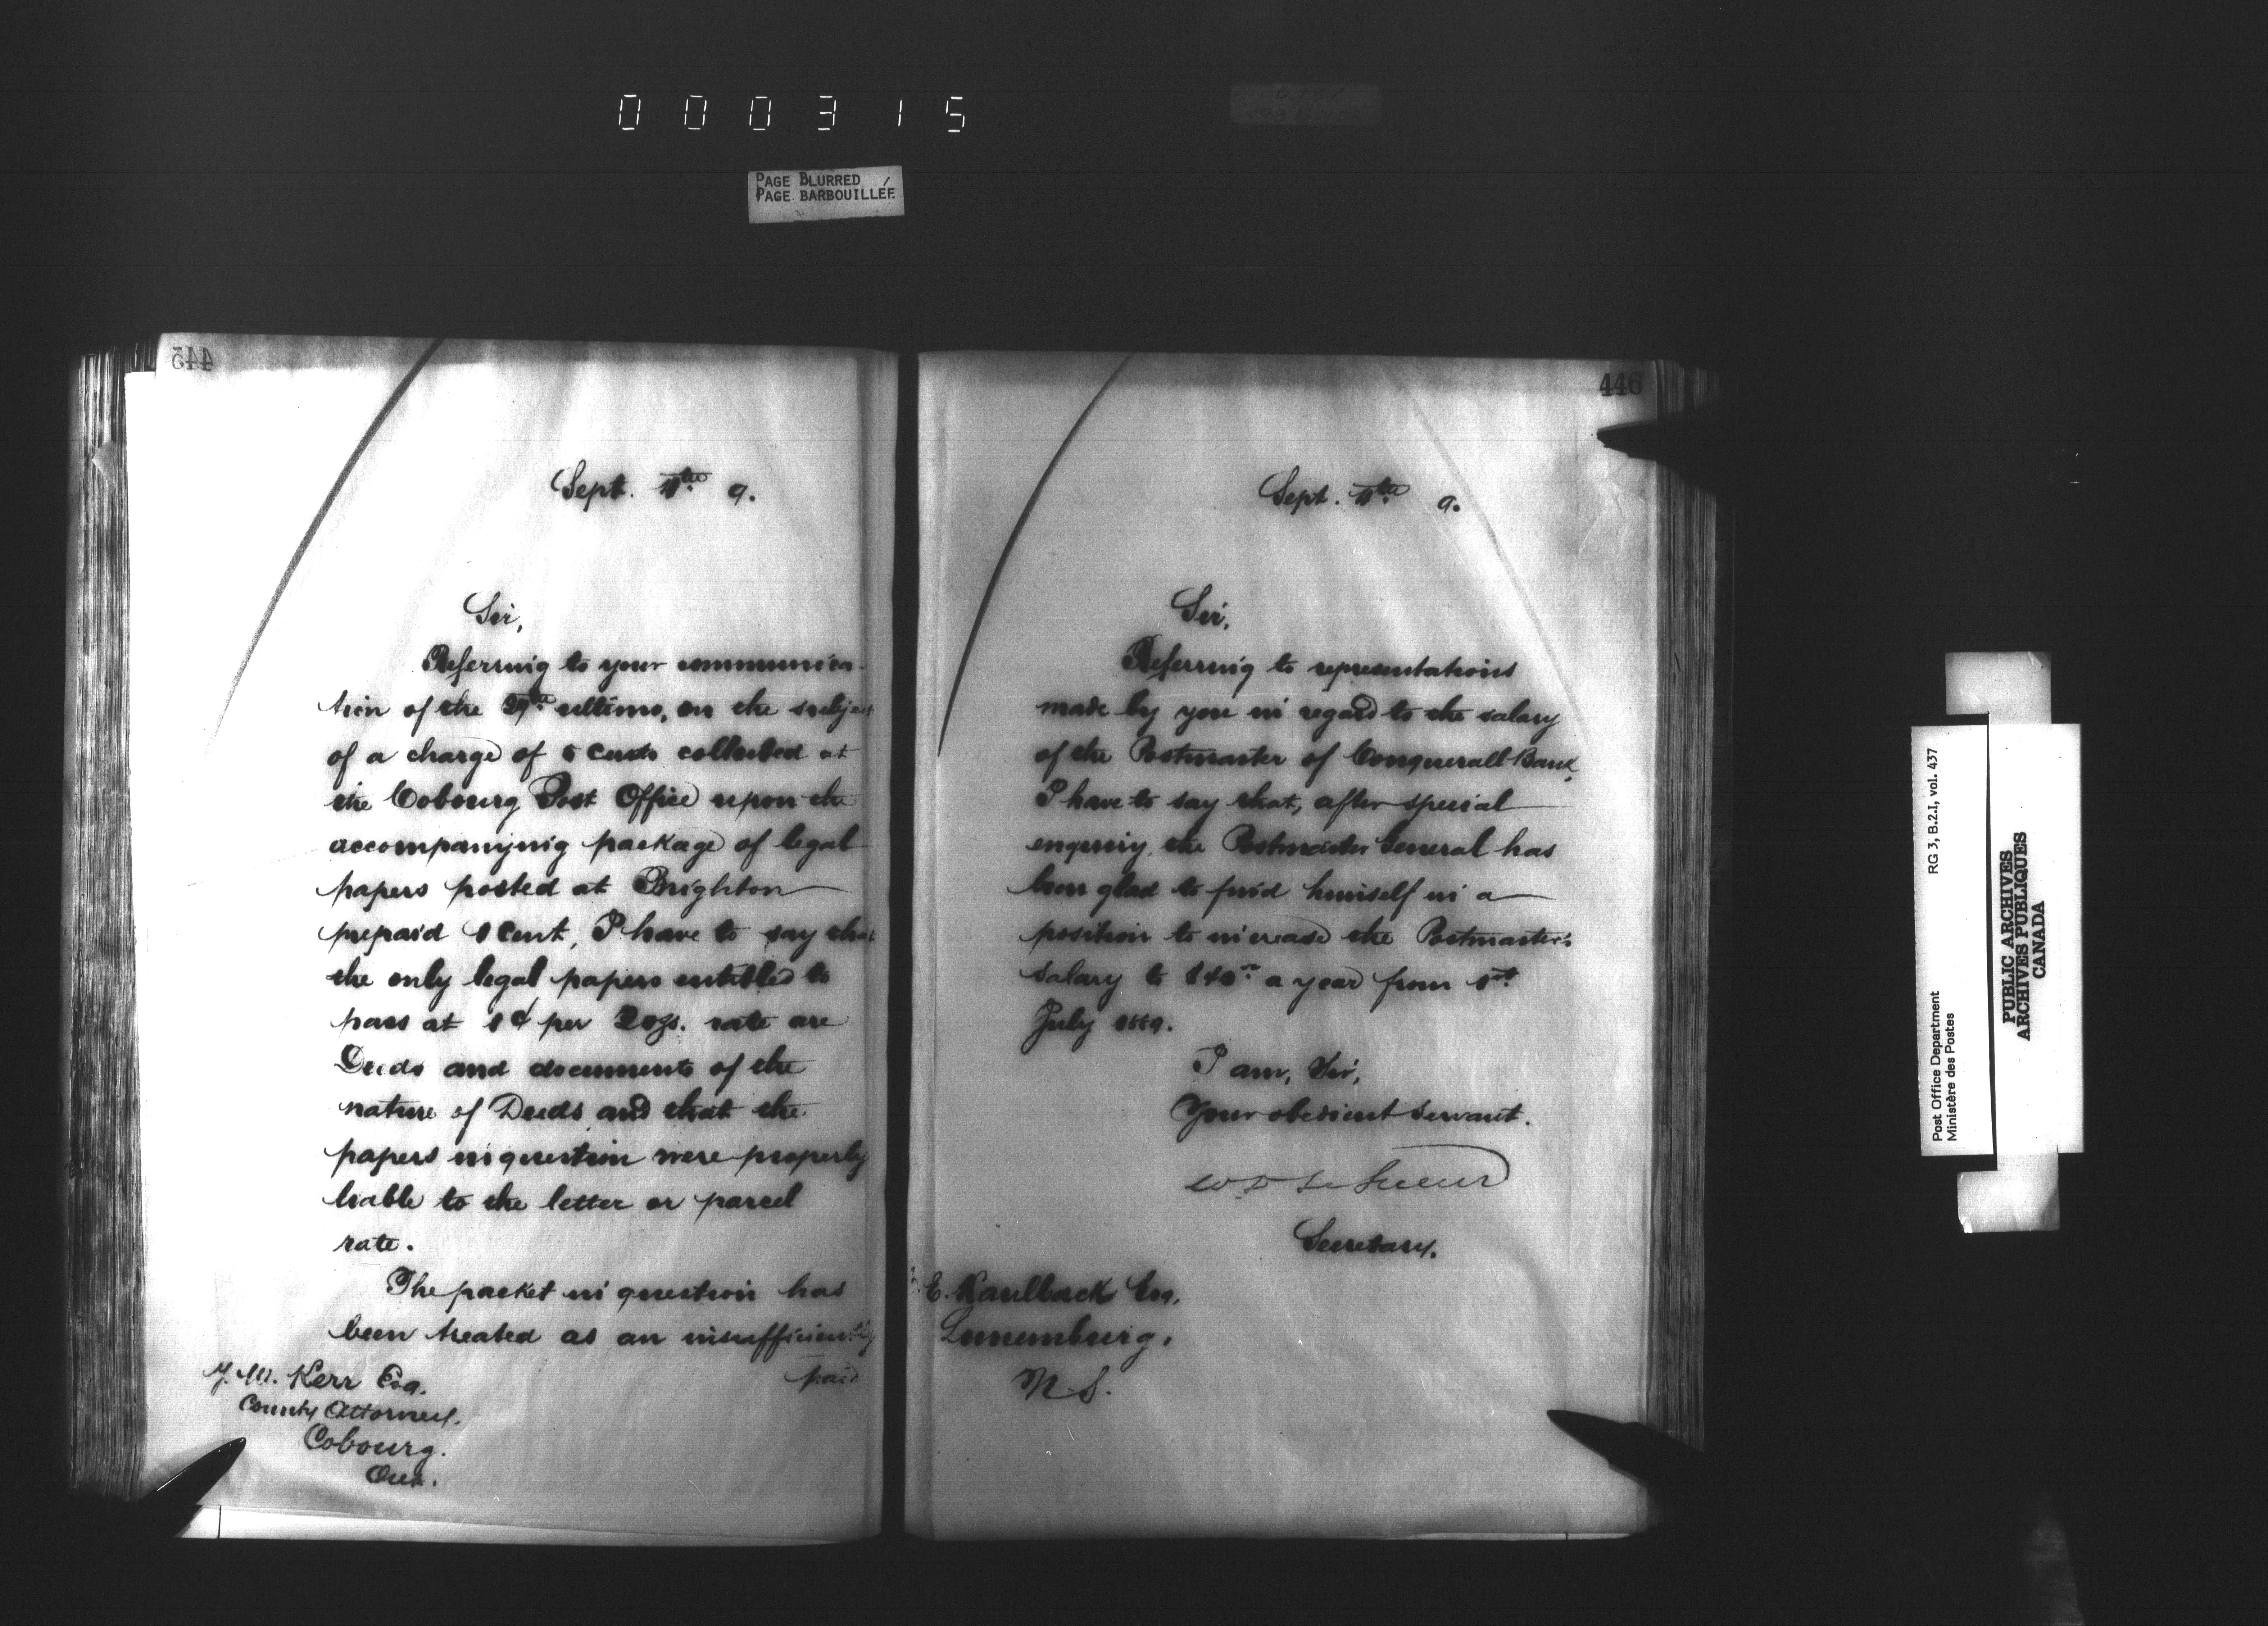 000315
PAGE BLURRED
PAGE BARBOUILLÉE
445
Sept. 11th 9.
Sir,
Referring to your communica-
tion of the 29th ultimo, on the subject
of a charge of 5 cents collected at
the Cobourg Post Office upon the
accompanying package of legal
papers posted at Brighton
prepaid 1 cent, I have to say that
the only legal papers entitled to
pass at 1¢ per 2 ozs. rate are
Deeds and documents of the
nature of Deeds and that the
papers in question were properly
liable to the letter or parcel
rate.
The packet in question has
been treated as an insufficiently
paid
Kerr Esq.
County Attorney.
Cobourg.
Ont.
446
Sept. 11th 9.
Sir,
Referring to representations
made by you in regard to the salary
of the Postmaster of Conquerall Bank,
I have to say that, after special
enquiry, the Postmaster General has
been glad to find himself in a
position to increase the Postmaster's
salary to $40 a year from 1st
July 1889.
I am, Sir,
Your obedient servant.
W D LeSueur
Secretary.
E. Kaulback Esq,
Lunenburg,
N.S.
Post Office Department
Ministère des Postes
RG 3, B.2.I, vol. 437
PUBLIC ARCHIVES
ARCHIVES PUBLIQUES
CANADA